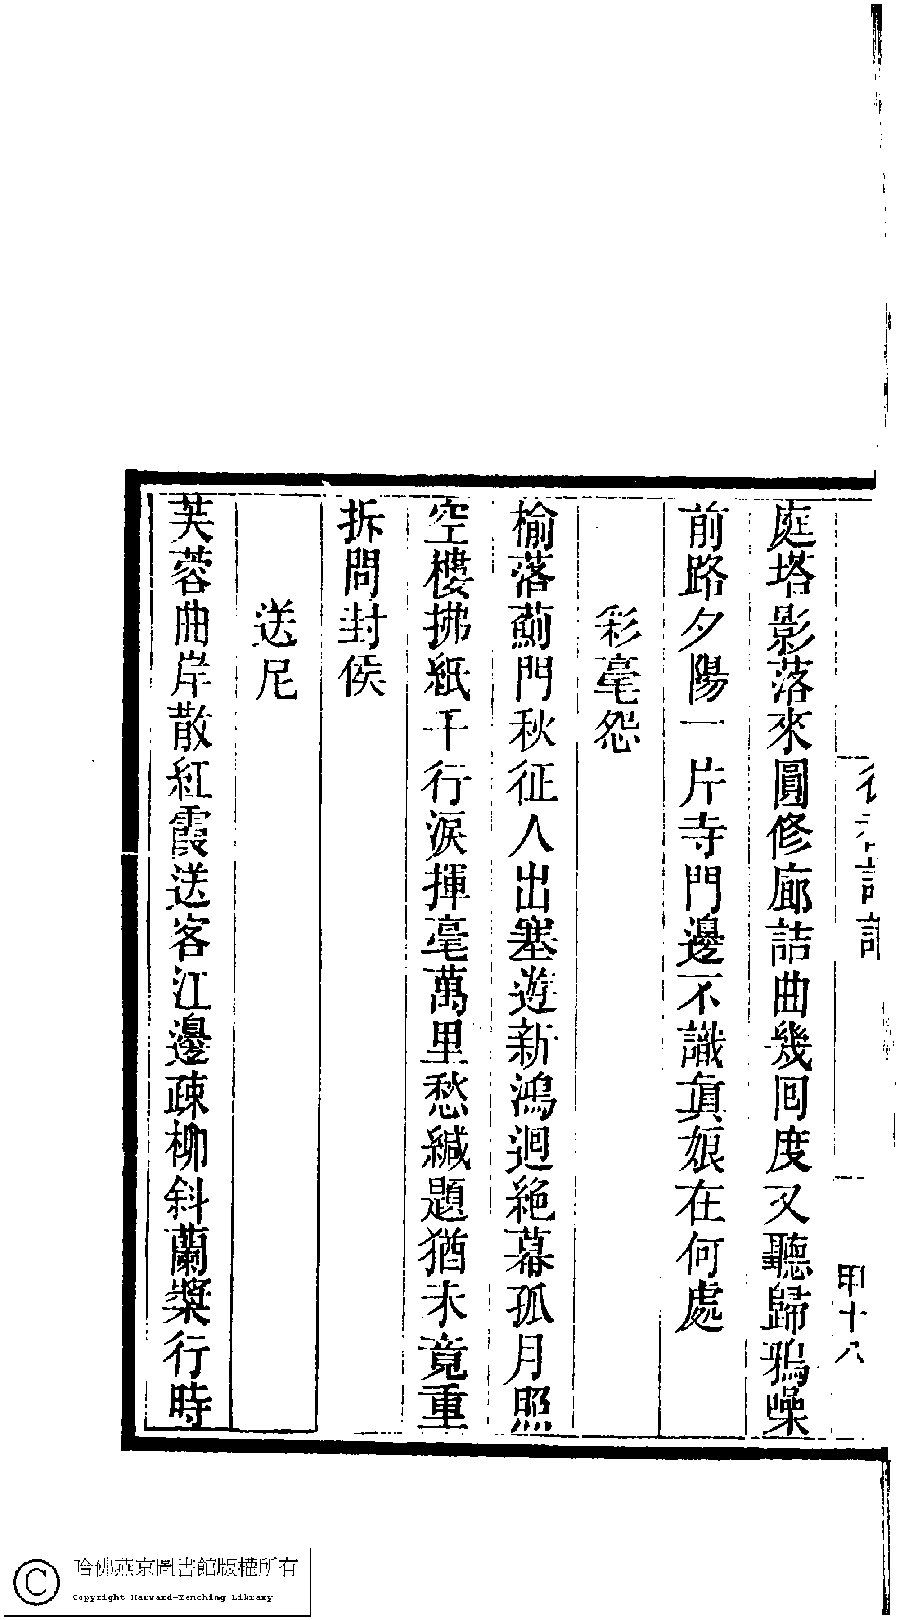 庭塔影落來圓修廊詰曲幾囘度又聽歸鴉噪
前路夕陽一片寺門邊不識眞娘在何處
彩毫怨
榆落薊門秋征人出塞遊新鴻迴絕幕孤月照
空樓拂紙千行淚揮毫萬里愁緘題猶未竟重
拆問封侯
送尼
芙蓉曲岸散紅霞送客江邊疎柳斜蘭槳行時
甲十八
哈佛燕京圖書館版權所有
Copyright Harvard-Yenching Library